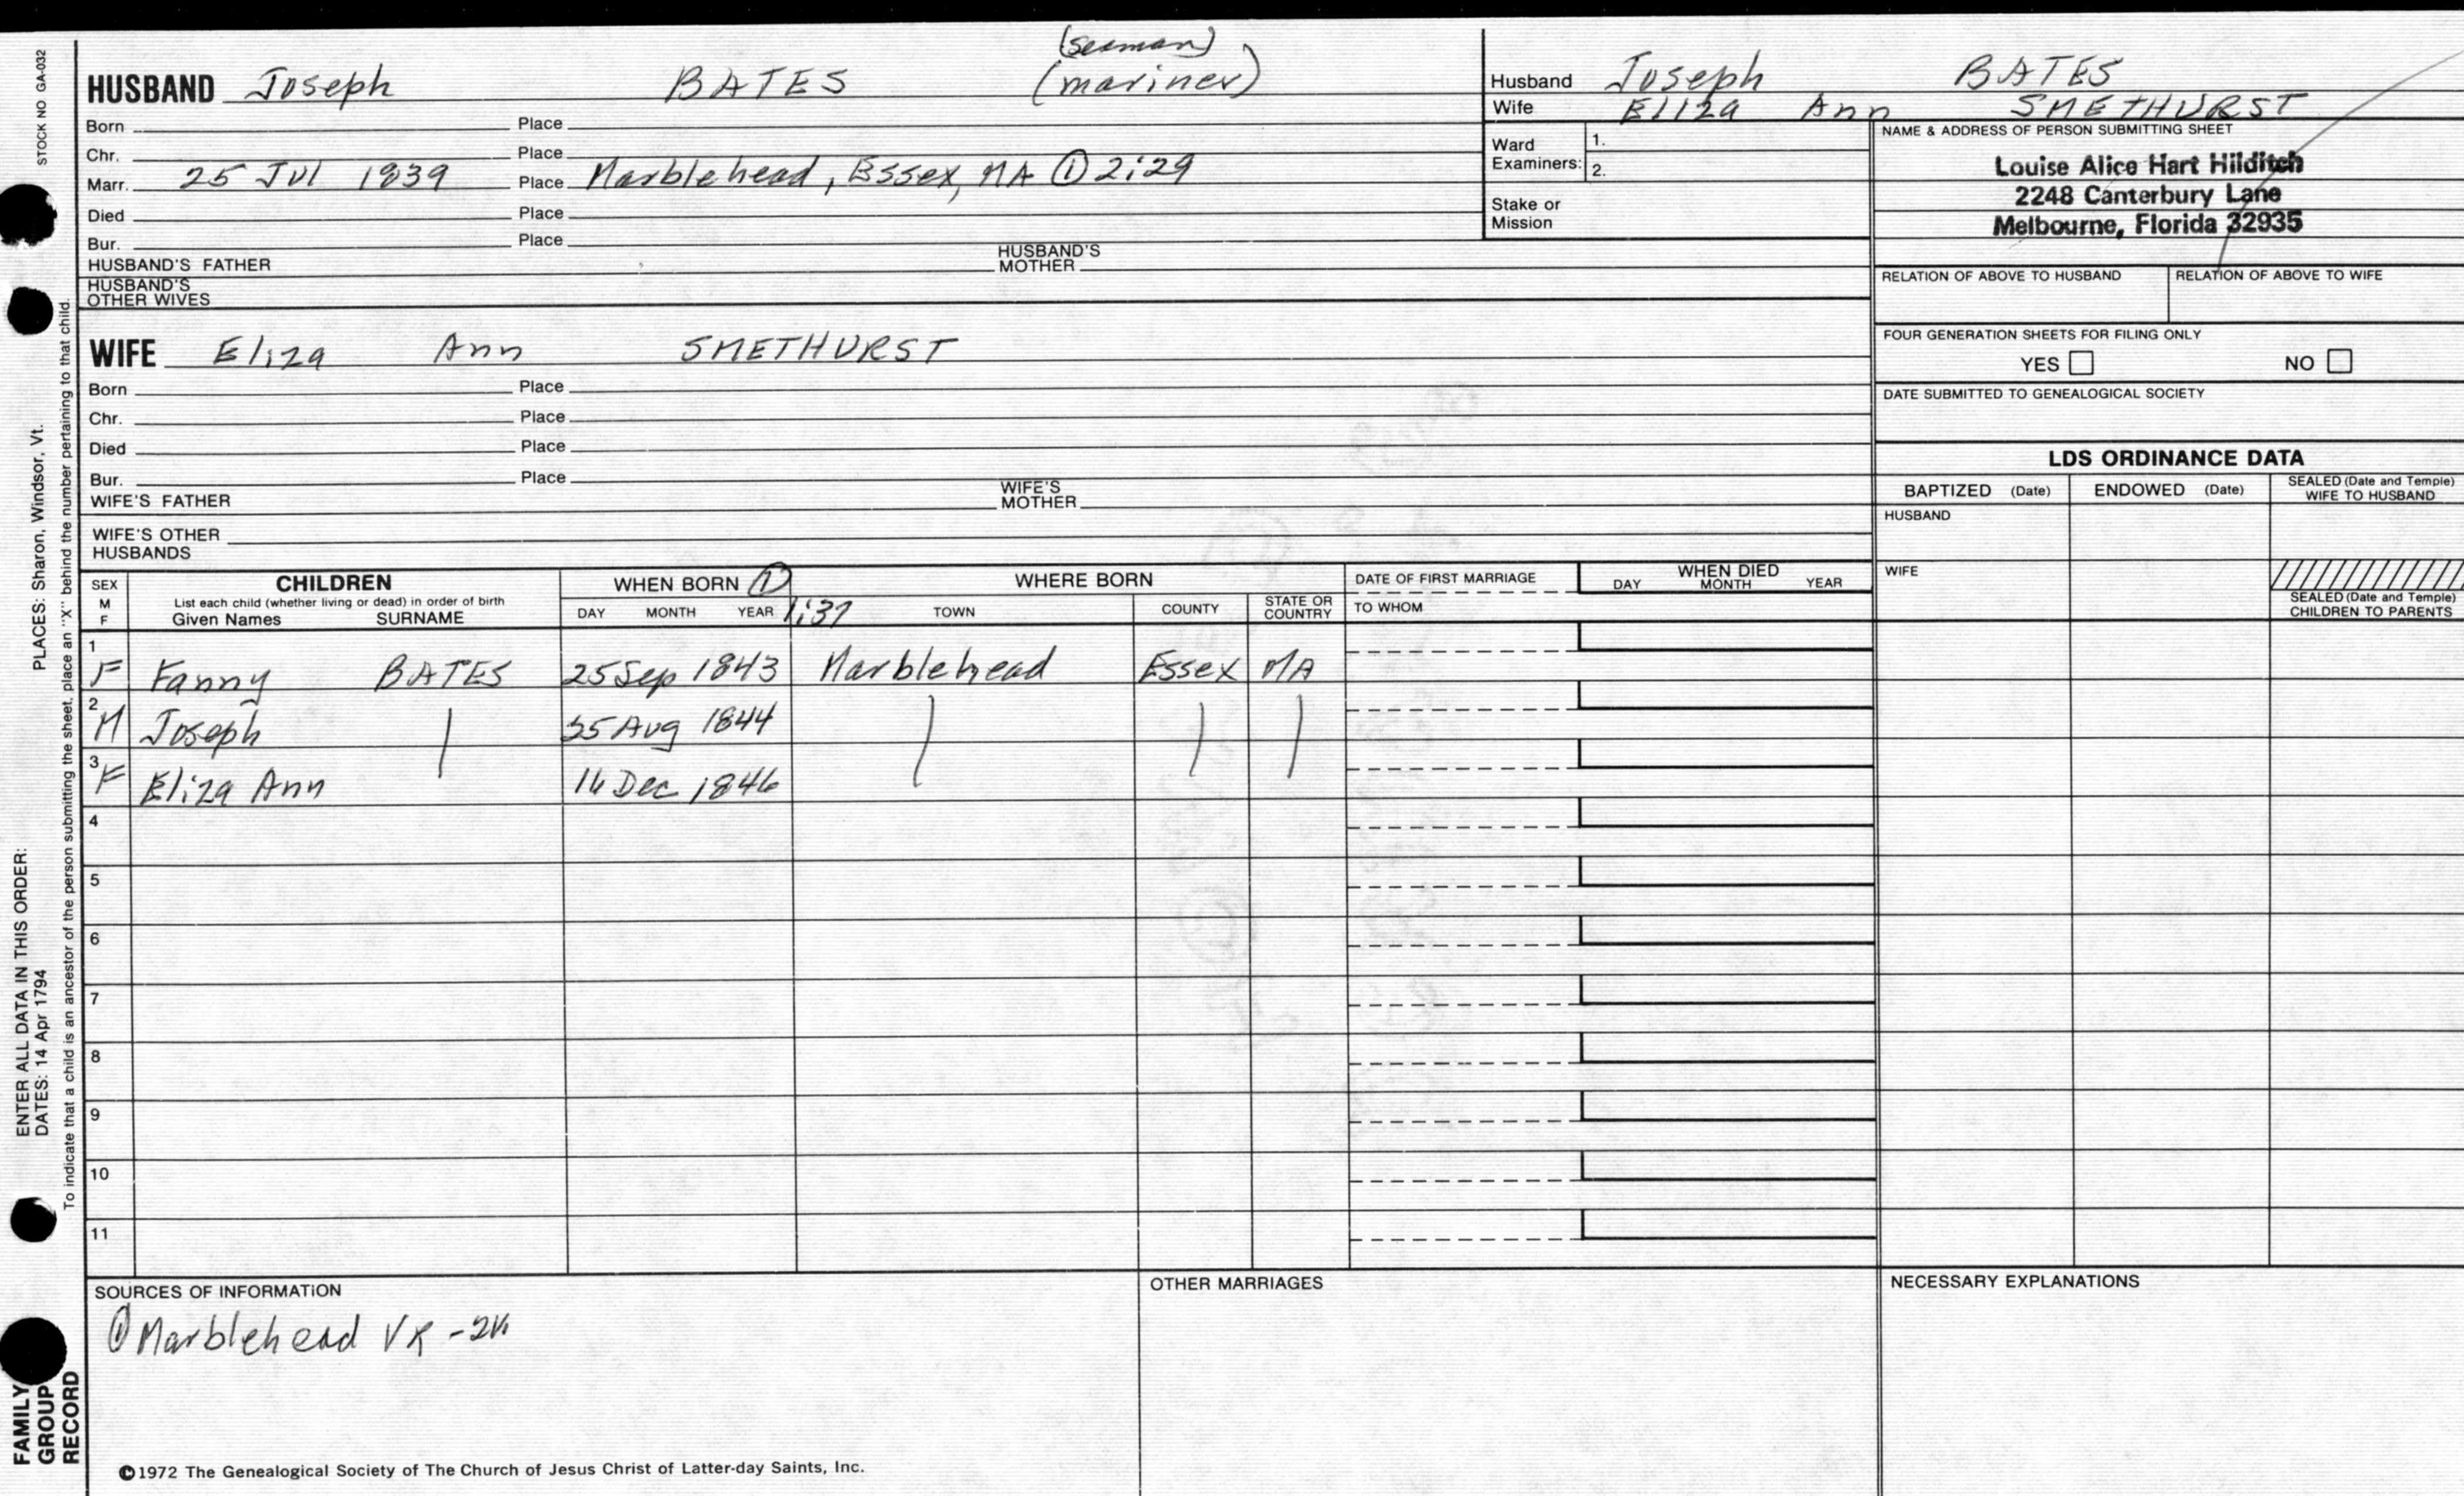 STOCK NO GA-032
PLACES: Sharon, Windsor, Vt.
ENTER ALL DATA IN THIS ORDER:
DATES: 14 Apr 1794
To indicate that a child is an ancestor of the person submitting the sheet, place an "X" behind the number pertaining to that child.
FAMILY
GROUP
RECORD
(seaman)
HUSBAND Joseph BATES (mariner)
Born Place
Chr. Place
Marr. 25 Jul 1839 Place Marblehead, Essex, MA ① 2:29
Died Place
Bur. Place
HUSBAND'S FATHER HUSBAND'S MOTHER
HUSBAND'S
OTHER WIVES
WIFE Eliza Ann SMETHURST
Born Place
Chr. Place
Died Place
Bur. Place
WIFE'S FATHER WIFE'S MOTHER
WIFE'S OTHER
HUSBANDS
Husband Joseph BATES
Wife Eliza Ann SMETHURST
Ward
Examiners:
1.
2.
Stake or
Mission
NAME & ADDRESS OF PERSON SUBMITTING SHEET
Louise Alice Hart Hilditch
2248 Canterbury Lane
Melbourne, Florida 32935
RELATION OF ABOVE TO HUSBAND RELATION OF ABOVE TO WIFE
FOUR GENERATION SHEETS FOR FILING ONLY
YES NO
DATE SUBMITTED TO GENEALOGICAL SOCIETY
LDS ORDINANCE DATA
BAPTIZED (Date) ENDOWED (Date) SEALED (Date and Temple)
WIFE TO HUSBAND
HUSBAND
WIFE
SEALED (Date and Temple)
CHILDREN TO PARENTS
SEX
M
F
CHILDREN
List each child (whether living or dead) in order of birth
Given Names SURNAME
WHEN BORN ①
DAY MONTH YEAR 1:37
WHERE BORN
TOWN COUNTY STATE OR COUNTRY
DATE OF FIRST MARRIAGE
TO WHOM
WHEN DIED
DAY MONTH YEAR
1 F Fanny BATES 25 Sep 1843 Marblehead Essex MA
2 M Joseph Aug 1844
3 F Eliza Ann Dec 1846
4
5
6
7
8
9
10
11
SOURCES OF INFORMATION
① Marblehead VR
OTHER MARRIAGES
NECESSARY EXPLANATIONS
©1972 The Genealogical Society of The Church of Jesus Christ of Latter-day Saints, Inc.